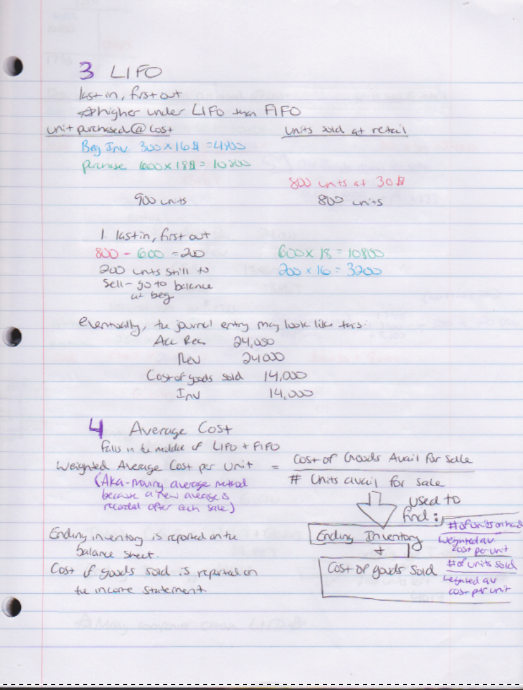 3 LIFO
last in, first out
higher under LIFO than FIFO
unit purchased @ cost    units sold at retail
Beg Inv 300 x 16$ = 4800
purchase 600 x 18$ = 10800
800 units at 30$
900 units    800 units
1 last in, first out
800 - 600 = 200    600 x 18 = 10800
200 units still to    200 x 16 = 3200
sell - go to balance
at beg
eventually, the journal entry may look like this:
Acc Rec 24,000
Rev 24000
Cost of goods sold 14,000
Inv 14,000
4 Average Cost
falls in the middle of LIFO + FIFO
Weighted Average Cost per Unit = Cost of Goods Avail for Sale
# Units avail for sale
(Aka - moving average method
because a new average is
recorded after each sale)
used to
find:
Ending Inventory
# of units on hand
weighted av
cost per unit
+
Cost of goods sold
# of units sold
weighted av
cost per unit
Ending inventory is reported on the
balance sheet.
Cost of goods sold is reported on
the income statement.